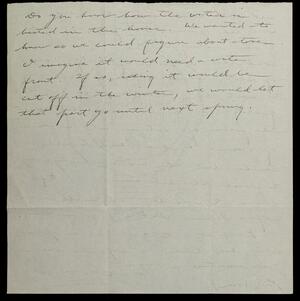 Do you know how the water is
heated in this house. We wanted to
know so we could figure about stove
I imagine it would need a water
front. If so, seeing it would be
cut off in the winter, we would let
that part go until next spring.